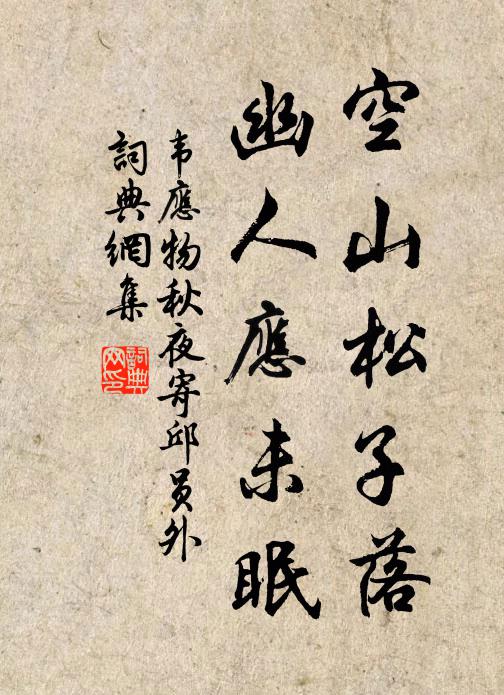 空山松子落
幽人應未眠
韦應物秋夜寄邱員外
詞典網集
詞典
网印